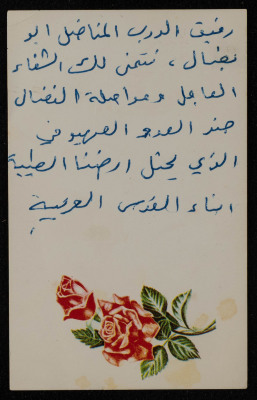 رفيق الدرب المناضل ابو
نضال ، نتمنى لك الشفاء
العاجل ومواصلة النضال
ضد العدو الصهيوني
الذي يحتل ارضنا الطيبة
ابناء القدس العربية